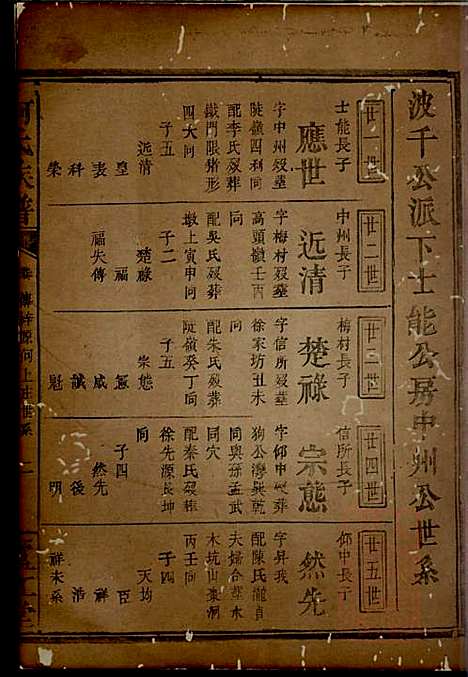 波千公派下士能公房中州公世系
廿一世
士能長子
應世
字中州歿塟
陡嶺四利向
配李氏歿葬
鐵門限猪形
四大向
子五
近清
皇
表
科
榮
廿二世
中州長子
近清
字梅村歿塟
高頭嶺壬丙
向
配吳氏歿葬
墩上寅申向
子二
楚祿
福
福失傳
廿三世
梅村長子
楚祿
字信所歿塟
徐家坊丑未
向
配朱氏歿葬
陡嶺癸丁向
子五
宗態
憲
咸
誠
魁
廿四世
信所長子
宗態
字仰中歿葬
狗公灣巽乾
向與孫孟武
同穴
配秦氏歿葬
徐先源艮坤
向
子四
然先
後
明
廿五世
仰中長子
然先
字昇我
配陳氏瀧貞
夫婦合塟水
木坑山棗洞
丙壬向
子四
天均
臣
祥
浩
祥未系
何氏族譜